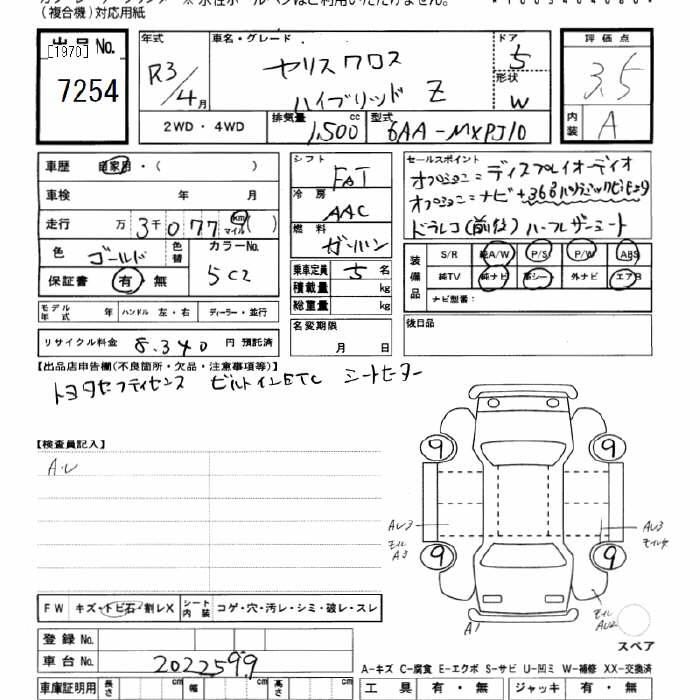 (複合機)対応用紙
出品No.
[1970]
7254
年式
R3/4月
車名・グレード
ヤリスクロス
ハイブリッド Z
ドア
5
形状
W
評価点
3.5
内装
A
2WD・4WD
排気量
1,500 cc
型式
6AA-MXPJ10
車歴
自家用・( )
車検 年 月
走行 万 3千077 km マイル( )
色
ゴールド
色替
カラーNo.
5C2
保証書 有・無
モデル年式 年
ハンドル 左・右
ディーラー・並行
リサイクル料金 8,340 円 預託済
シフト
FAT
冷房
AAC
燃料
ガソリン
乗車定員 5 名
積載量 kg
総重量 kg
名変期限
月 日
セールスポイント
オプション=ディスプレイオーディオ
オプション=ナビ+
ドラレコ(前後) ハーフレザーシート
装備品
S/R 純A/W P/S P/W ABS
純TV 純ナビ 革シート 外ナビ エアB
ナビ型番:
後日品
【出品店申告欄(不良箇所・欠品・注意事項等)】
トヨタセーフティセンス ビルトインETC シートヒーター
【検査員記入】
9
9
9
9
AU3
A3
AU3
A1
AU2
スペア
FW キズ・トビ石・割レX シート内装 コゲ・穴・汚レ・シミ・破レ・スレ
登録No.
車台No.
2022599
A-キズ C-腐食 E-エクボ S-サビ U-凹ミ W-補修 XX-交換済
車庫証明用 長さ cm 幅 cm 高さ cm
工具 有・無 ジャッキ 有・無